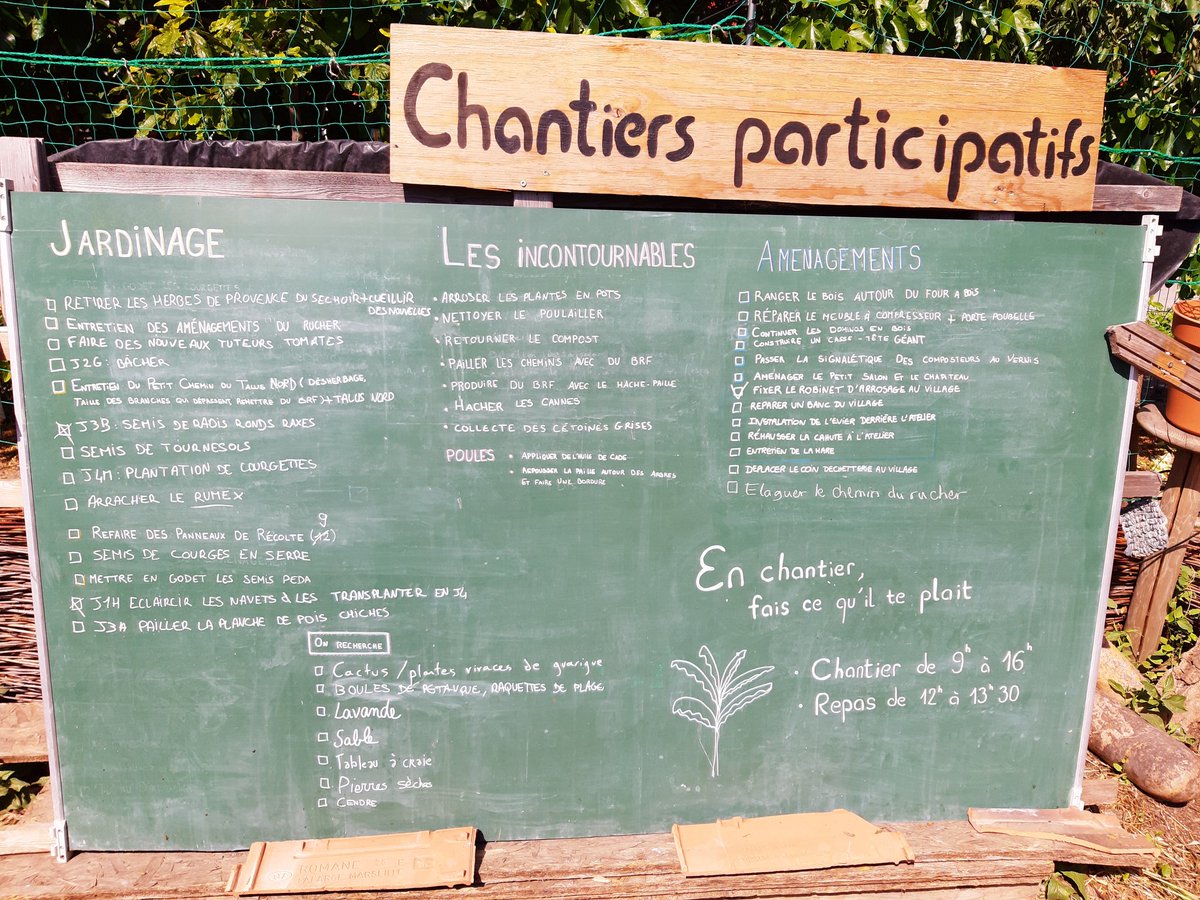 Chantiers participatifs
JARDINAGE
RETIRER LES HERBES DE PROVENCE DU SECHOIR + CUEILLIR
DES NOUVELLES
ENTRETIEN DES AMÉNAGEMENTS DU RUCHER
FAIRE DES NOUVEAUX TUTEURS TOMATES
J2G : BÂCHER
ENTRETIEN DU PETIT CHEMIN DU TALUS NORD (DÉSHERBAGE,
TAILLE DES BRANCHES QUI DÉPASSENT, REMETTRE DU BRF) + TALUS NORD
J3B : SEMIS DE RADIS RONDS RAXES
SEMIS DE TOURNESOLS
J4M : PLANTATION DE COURGETTES
ARRACHER LE RUMEX
9
REFAIRE DES PANNEAUX DE RÉCOLTE (12)
SEMIS DE COURGES EN SERRE
METTRE EN GODET LES SEMIS PEDA
J1H ECLAIRCIR LES NAVETS & LES TRANSPLANTER EN J4
J3A PAILLER LA PLANCHE DE POIS CHICHES
ON RECHERCHE
Cactus / plantes vivaces de guarigue
BOULES DE PETANQUE, RAQUETTES DE PLAGE
Lavande
Sable
Tableau à craie
Pierres sèches
CENDRE
LES INCONTOURNABLES
• ARROSER LES PLANTES EN POTS
• NETTOYER LE POULAILLER
• RETOURNER LE COMPOST
• PAILLER LES CHEMINS AVEC DU BRF
• PRODUIRE DU BRF AVEC LE HACHE-PAILLE
• HACHER LES CANNES
• COLLECTE DES CÉTOINES GRISES
POULES • APPLIQUER DE L'HUILE DE CADE
• REPOUSSER LA PAILLE AUTOUR DES ARBRES
ET FAIRE UNE BORDURE
AMENAGEMENTS
RANGER LE BOIS AUTOUR DU FOUR A BOIS
RÉPARER LE MEUBLE À COMPRESSEUR + PORTE POUBELLE
CONTINUER LES DOMINOS EN BOIS
CONSTRUIRE UN CASSE-TÊTE GÉANT
PASSER LA SIGNALÉTIQUE DES COMPOSTEURS AU VERNIS
AMÉNAGER LE PETIT SALON ET LE CHAPITEAU
FIXER LE ROBINET D'ARROSAGE AU VILLAGE
REPARER UN BANC DU VILLAGE
INSTALATION DE L'EVIER DERRIÈRE L'ATELIER
RÉHAUSSER LA CAHUTE À L'ATELIER
ENTRETIEN DE LA MARE
DEPLACER LE COIN DECHETTERIE AU VILLAGE
Elaguer le chemin du rucher
En chantier,
fais ce qu'il te plait
• Chantier de 9h à 16h
• Repas de 12h à 13h30
ROMANE
LAFARGE MARSEILLE